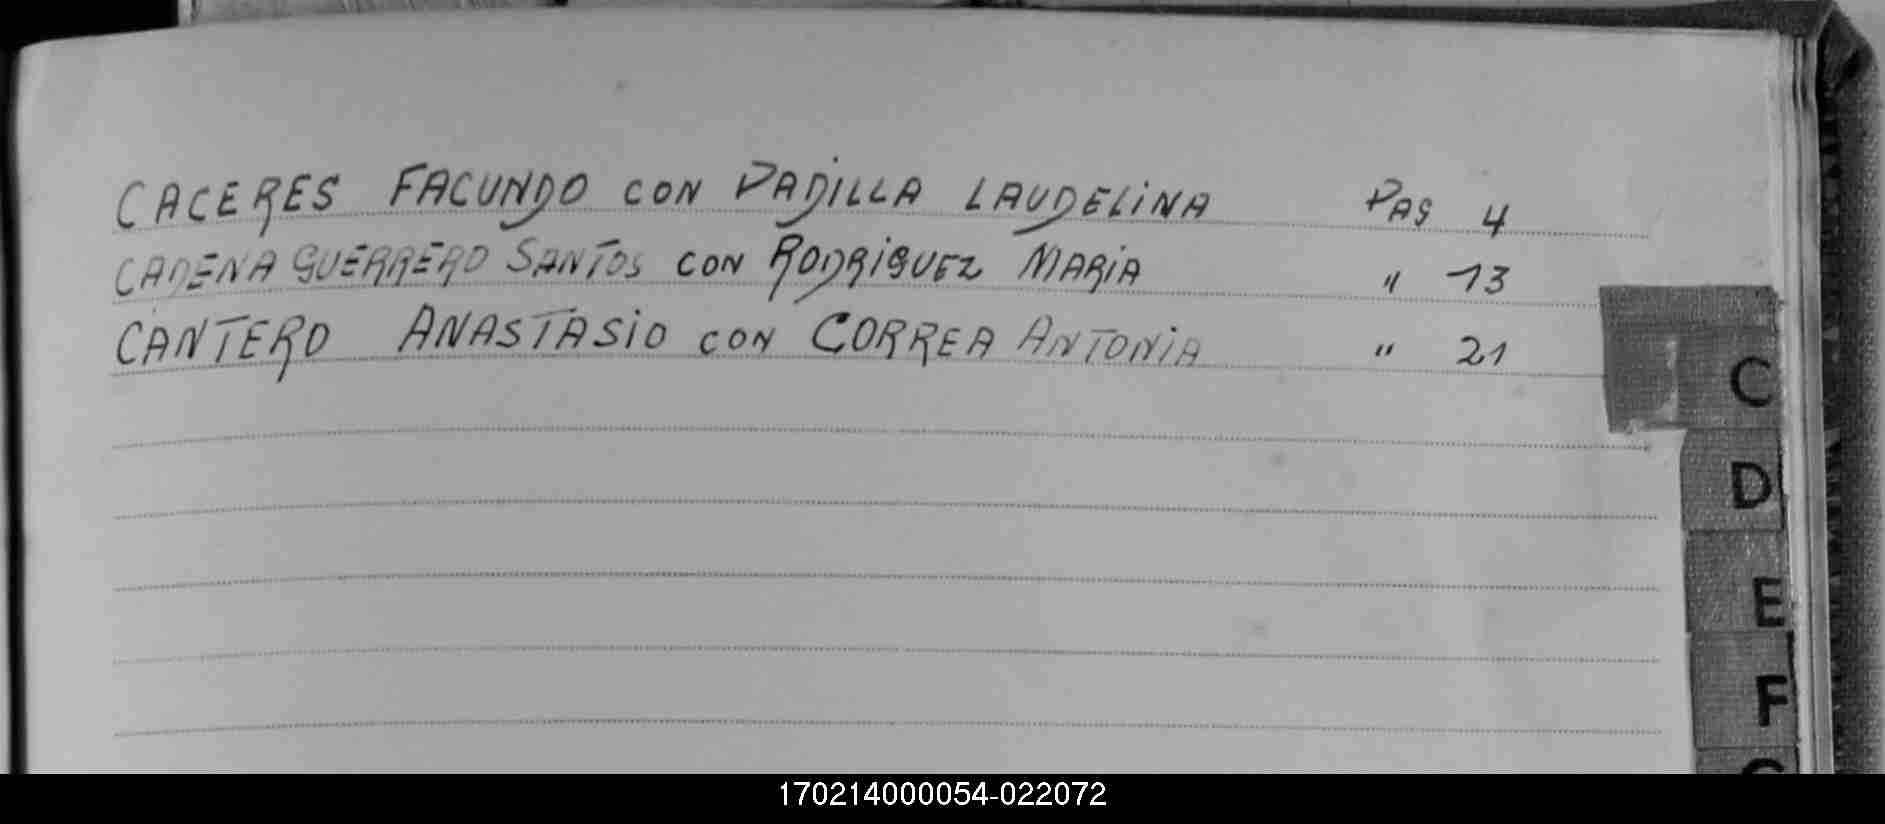 CACERES FACUNDO CON PADILLA LAUDELINA PAG 4
CADENA GUERRERO SANTOS CON RODRIGUEZ MARIA " 13
CANTERO ANASTASIO CON CORREA ANTONIA " 21
C
D
E
F
170214000054-022072